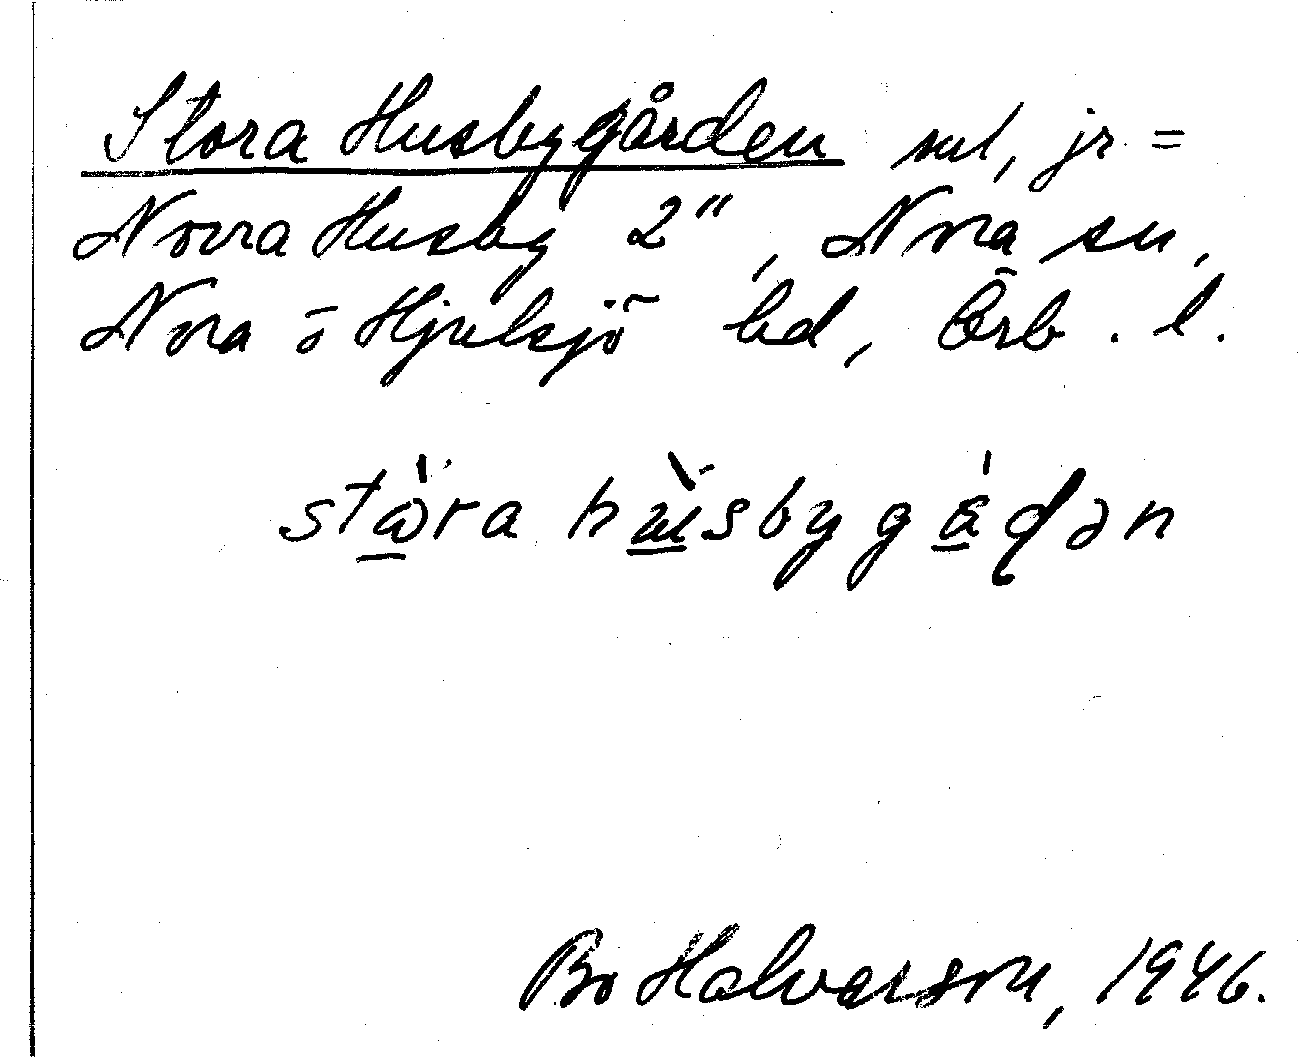 Stora Husbygården sml, jr =
Norra Husby 2", Nora sn,
Nora o Hjulsjö bd, Örb. l.
Bo Halvarson, 1946.